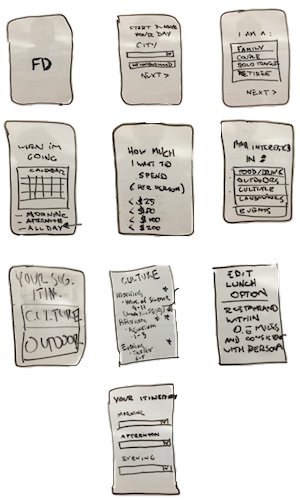 FD
START PLANNING
YOUR DAY
CITY
NEIGHBORHOOD
NEXT >
I AM A:
FAMILY
COUPLE
SOLO TRAVELER
RETIREE
NEXT >
WHEN I'M
GOING
CALENDAR
MORNING
AFTERNOON
ALL DAY
HOW MUCH
I WANT TO
SPEND
(PER PERSON)
< $25
< $50
< $100
< $200
INTERESTED
IN:
FOOD/DRINK
OUTDOORS
CULTURE
LANDMARKS
EVENTS
YOUR SUG.
ITIN.
CULTURE
OUTDOOR
CULTURE
MORNING
9-11
1-3
EVENING
EDIT
LUNCH
OPTION
RESTAURANT
WITHIN
0.5 MILES
AND CONSISTENT
WITH PERSONA
YOUR ITINERARY
MORNING
AFTERNOON
EVENING